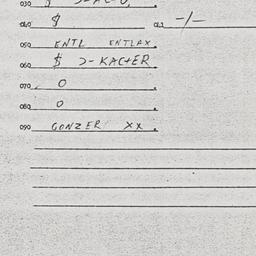 030 $
040 $ 041 -/-
050 ENTL ENTLAX
060 $ Ɔ-KACHER
070 0
080 0
090 GONZER XX